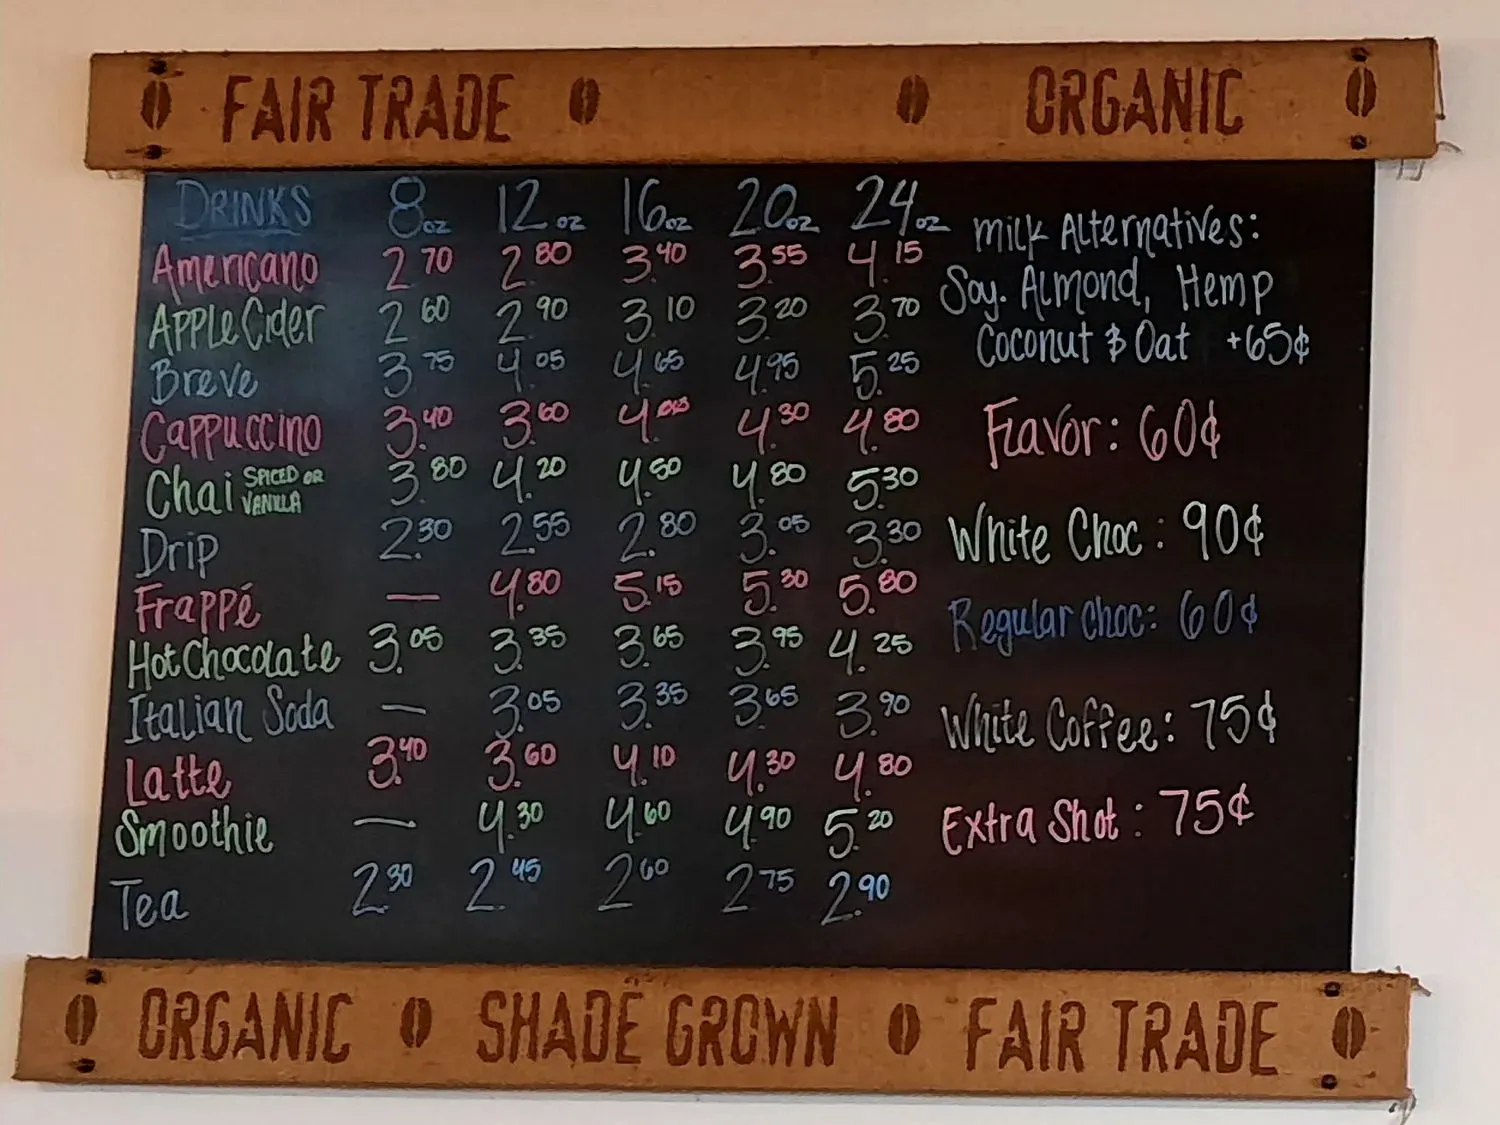 FAIR TRADE ORGANIC
DRINKS 8oz 12oz 16oz 20oz 24oz
Americano 2.70 2.80 3.40 3.55 4.15
Apple Cider 2.60 2.90 3.10 3.20 3.70
Breve 3.75 4.05 4.65 4.95 5.25
Cappuccino 3.40 3.60 4. 4.30 4.80
Chai SPICED OR VANILLA 3.80 4.20 4.50 4.80 5.30
Drip 2.30 2.55 2.80 3.05 3.30
Frappé — 4.80 5.15 5.30 5.80
Hot Chocolate 3.05 3.35 3.65 3.95 4.25
Italian Soda — 3.05 3.35 3.65 3.90
Latte 3.40 3.60 4.10 4.30 4.80
Smoothie — 4.30 4.60 4.90 5.20
Tea 2.30 2.45 2.60 2.75 2.90
Milk Alternatives:
Soy. Almond, Hemp
Coconut & Oat +65¢
Flavor: 60¢
White Choc: 90¢
Regular Choc: 60¢
White Coffee: 75¢
Extra Shot: 75¢
ORGANIC SHADE GROWN FAIR TRADE